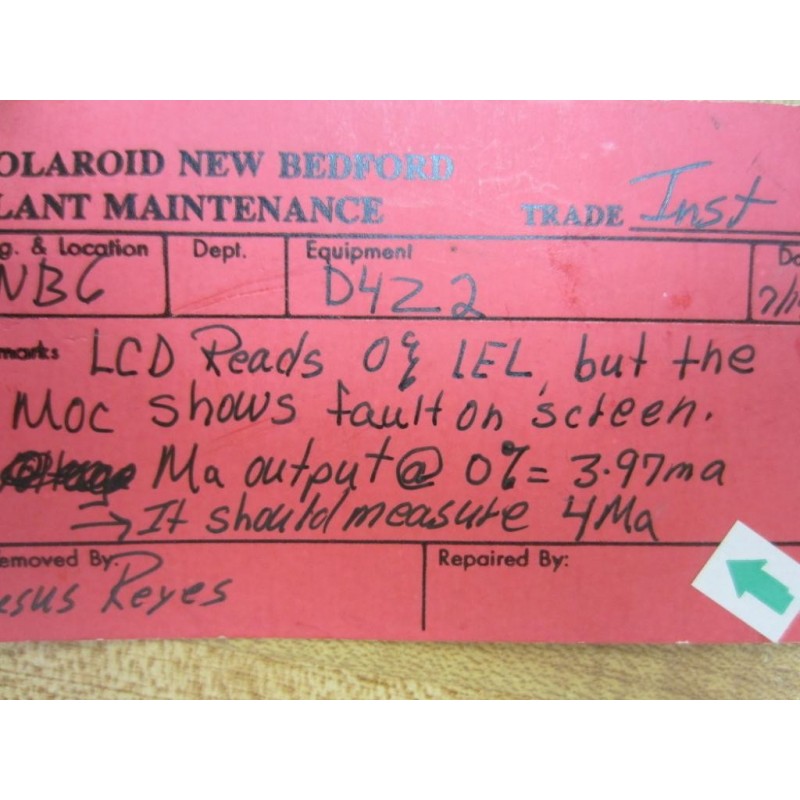 OLAROID NEW BEDFORD
LANT MAINTENANCE TRADE Inst
g. & Location Dept. Equipment Da
NBC D4Z2 7/1
marks LCD Reads 0% LEL, but the
MOC shows fault on screen.
Ma output @ 0% = 3.97ma
→ It should measure 4Ma
emoved By: Repaired By:
esus Reyes